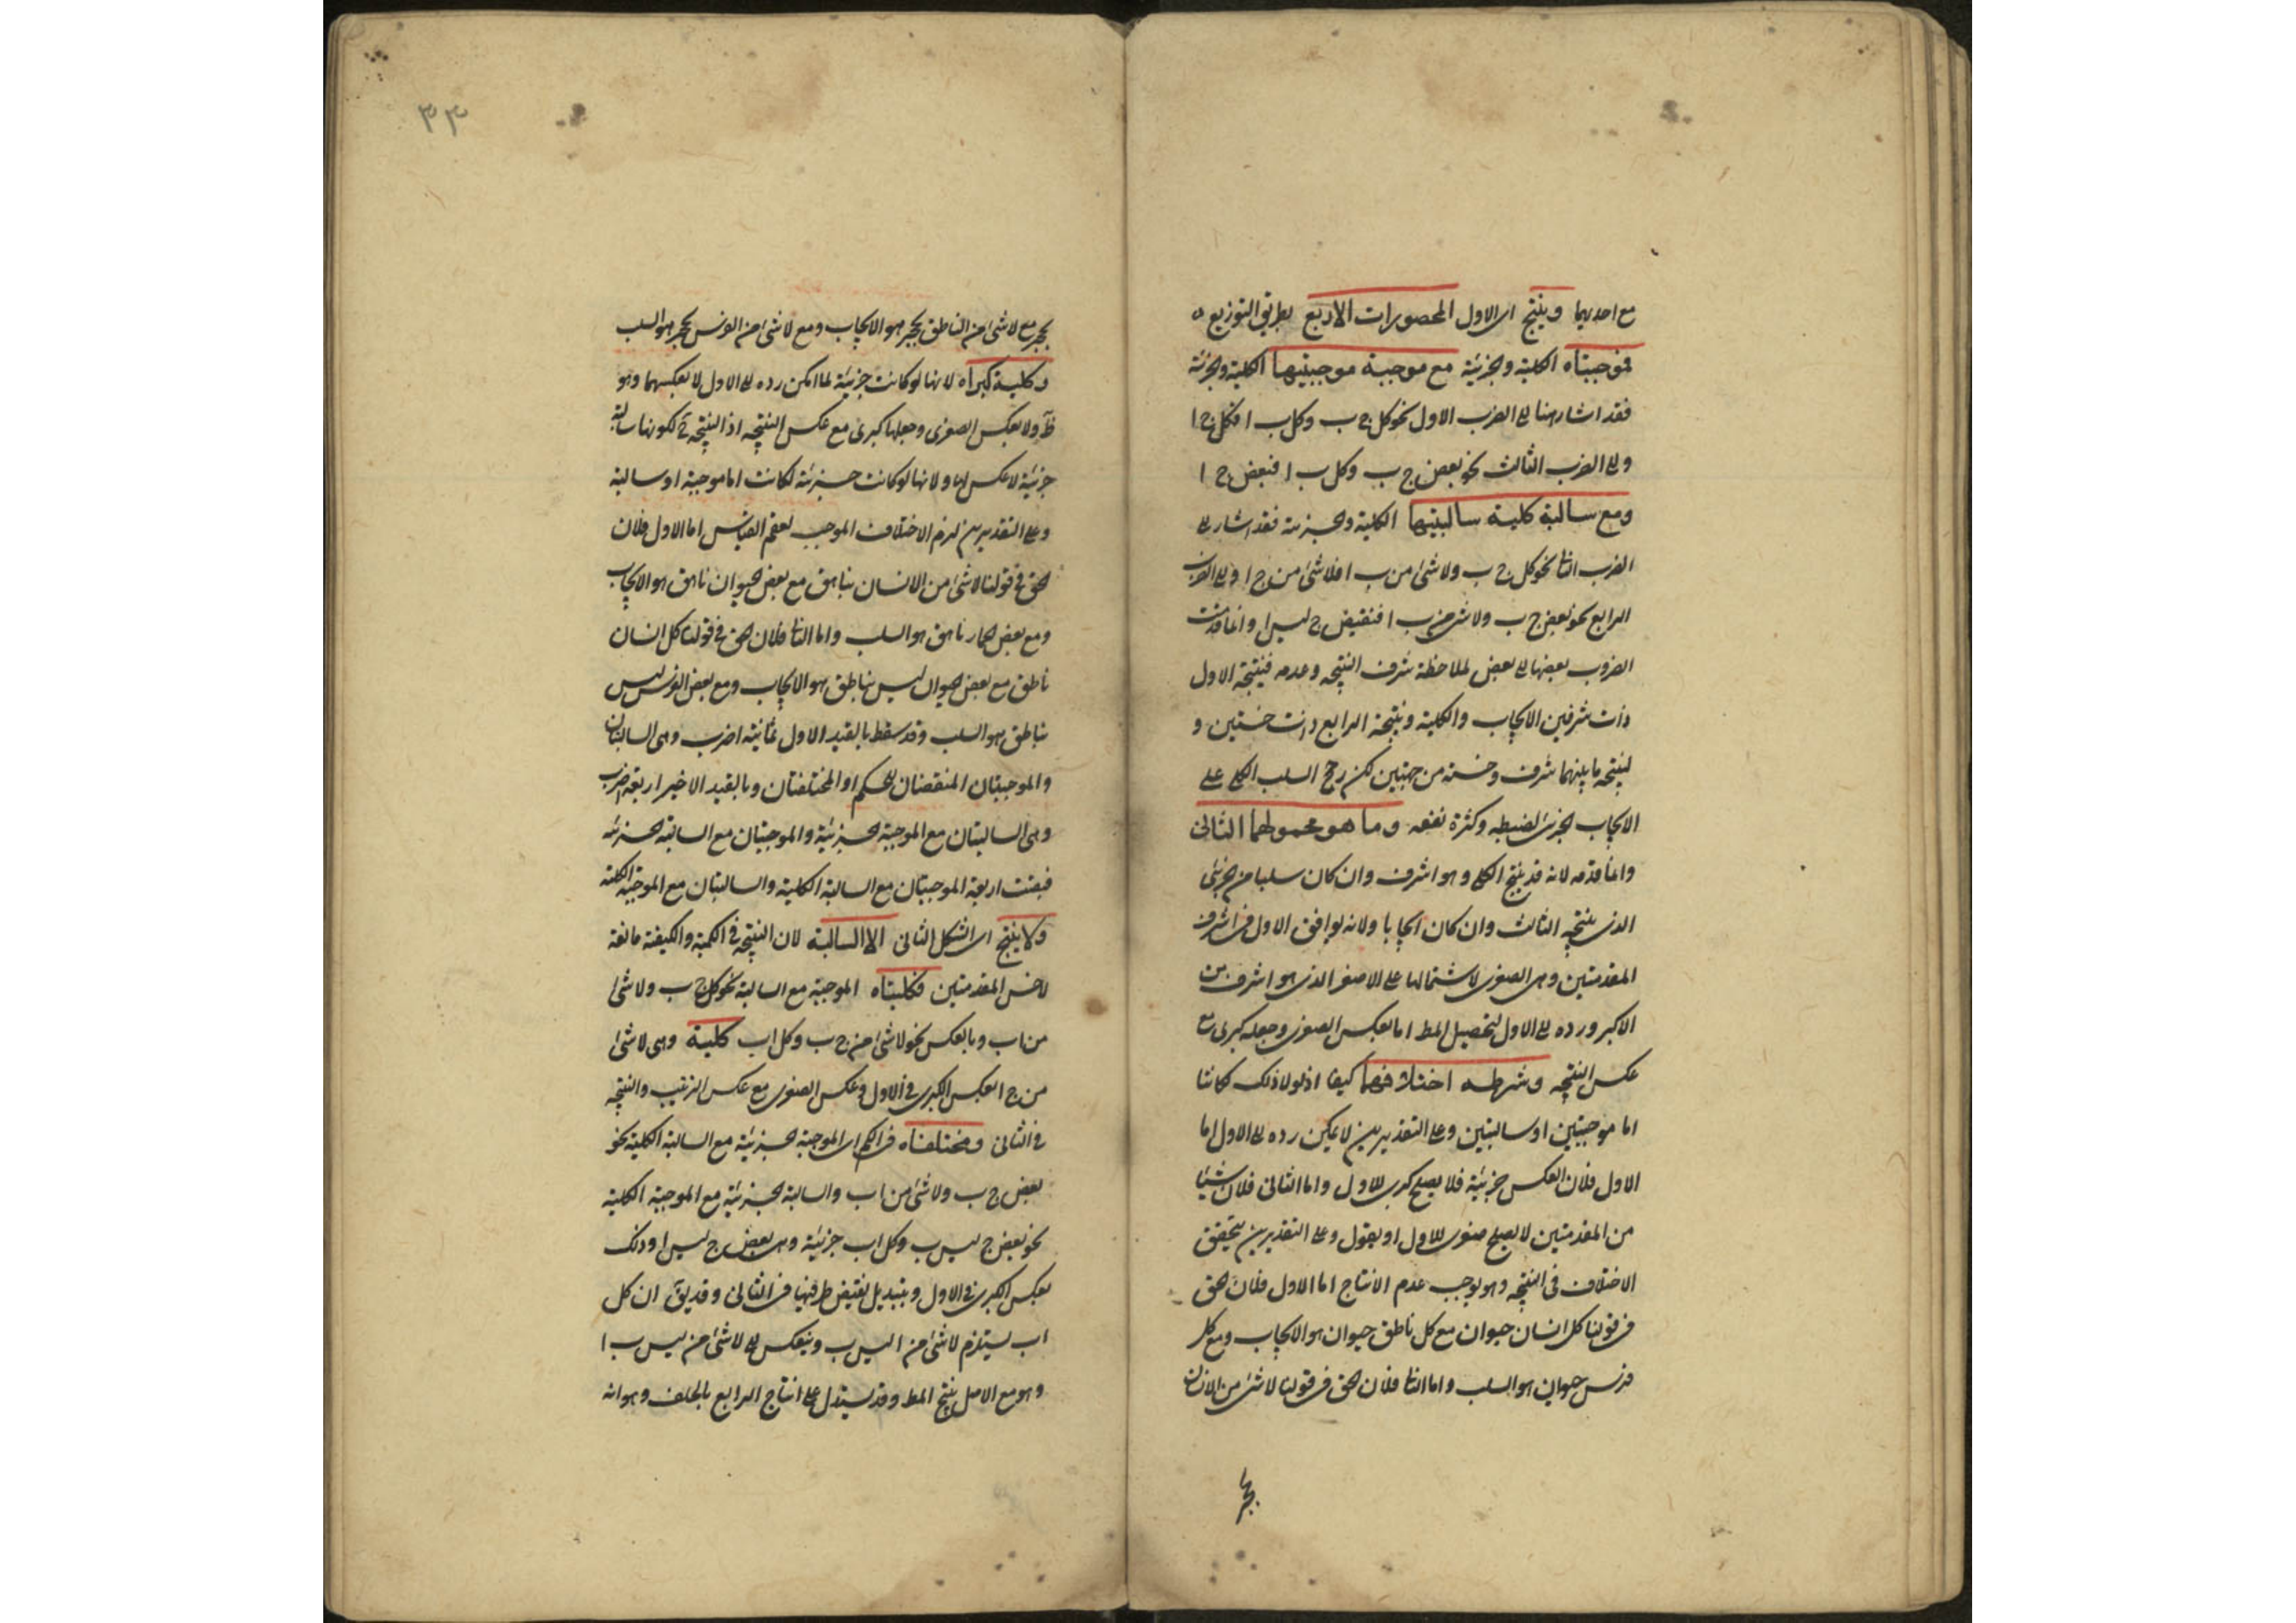 مع احديهما وينتج اى الاول المحصورات الاربع بطريق التوزيع
فموجبتاه الكلية والجزئية مع موجبة موجبتيها الكلية والجزئية
فقد اشار هنا الى الضرب الاول نحو كل ج ب وكل ب ا فكل ج ا
والى الضرب الثالث نحو بعض ج ب وكل ب ا فبعض ج ا
ومع سالبة كلية سالبتيها الكلية والجزئية فقد اشار الى
الضرب الثا نحو كل ج ب ولا شئ من ب ا فلا شئ من ج ا والى الضرب
الرابع نحو بعض ج ب ولا شئ من ب ا فبعض ج ليس ا وانما قدمت
الضروب بعضها الى بعض لملاحظة شرف النتيجه وعدمه فنتيجة الاول
ذات شرفين الايجاب والكلية ونتيجة الرابع ذات خستين و
لنتيجه ما بينهما شرف وخسة من جهتين لكن رجح السلب الكلى على
الايجاب الجزئى لضبطه وكثرة نفعه وما هو محمولهما الثانى
وانما قدمه لانه قد ينتج الكلى وهو اشرف وان كان سلبا من الجزئى
الذى ينتجه الثالث وان كان ايجابا ولانه يوافق الاول فى اشرف
المقدمتين وهى الصغرى لاشتمالها على الاصغر الذى هو اشرف من
الاكبر ورده الى الاول لتحصيل المط اما بعكس الصغرى وجعله كبرى مع
عكس النتيجه وشرطه اختلافهما كيفا اذ لولا ذلك لكانتا
اما موجبتين او سالبتين وعلى التقديرين لا يمكن رده الى الاول اما
الاول فلان العكس جزئية فلا يصلح كبرى للاول واما الثانى فلان شيئا
من المقدمتين لا يصلح صغرى للاول او يقول وعلى التقديرين يتحقق
الاختلاف فى النتيجه وهو يوجب عدم الانتاج اما الاول فلان الحق
فى قولنا كل انسان حيوان مع كل ناطق حيوان هو الايجاب ومع كل
فرس حيوان هو السلب واما الثا فلان الحق فى قولنا لا شئ من الانسان
بحجر
٣٣
بحجر مع لا شئ من الناطق بحجر هو الايجاب ومع لا شئ من الفرس بحجر هو السلب
وكلية كبراه لانها لو كانت جزئية لما امكن رده الى الاول لا بعكسهما وهو
ظ ولا بعكس الصغرى وجعلها كبرى مع عكس النتيجه اذ النتيجه ح لكونها سالبة
جزئية لا عكس لها ولانها لو كانت جزئية لكانت اما موجبة او سالبة
وعلى التقديرين لزم الاختلاف الموجب لعقم القياس اما الاول فلان
الحق فى قولنا لا شئ من الانسان بناهق مع بعض الحيوان ناهق هو الايجاب
ومع بعض الحمار ناهق هو السلب واما الثا فلان الحق فى قولنا كل انسان
ناطق مع بعض الحيوان ليس بناطق هو الايجاب ومع بعض الفرس ليس
بناطق هو السلب وقد سقط بالقيد الاول ثمانية اضرب وهى السالبتان
والموجبتان المتفقتان فى الحكم او المختلفتان وبالقيد الاخير اربعة اضرب
وهى السالبتان مع الموجبة الجزئية والموجبتان مع السالبة الجزئية
فبقيت اربعة الموجبتان مع السالبة الكلية والسالبتان مع الموجبة الكلية
ولا ينتج اى الشكل الثانى الا السالبة لان النتيجه فى الكمية والكيفية تابعة
لاخس المقدمتين فكليتاه الموجبة مع السالبة نحو كل ج ب ولا شئ
من ا ب وبالعكس نحو لا شئ من ج ب وكل ا ب كلية وهى لا شئ
من ج ا بعكس الكبرى فى الاول وعكس الصغرى مع عكس الترتيب والنتيجه
فى الثانى ومختلفتاه فى الكم اى الموجبة الجزئية مع السالبة الكلية نحو
بعض ج ب ولا شئ من ا ب والسالبة الجزئية مع الموجبة الكلية
نحو بعض ج ليس ب وكل ا ب جزئية وهى بعض ج ليس ا وذلك
بعكس الكبرى فى الاول وبتبديل نقيض طرفيها فى الثانى وقد يق ان كل
ا ب يستلزم لا شئ من ا ليس ب وينعكس الى لا شئ من ليس ب ا
وهو مع الاصل ينتج المط وقد يستدل على انتاج الرابع بالخلف وهو انه